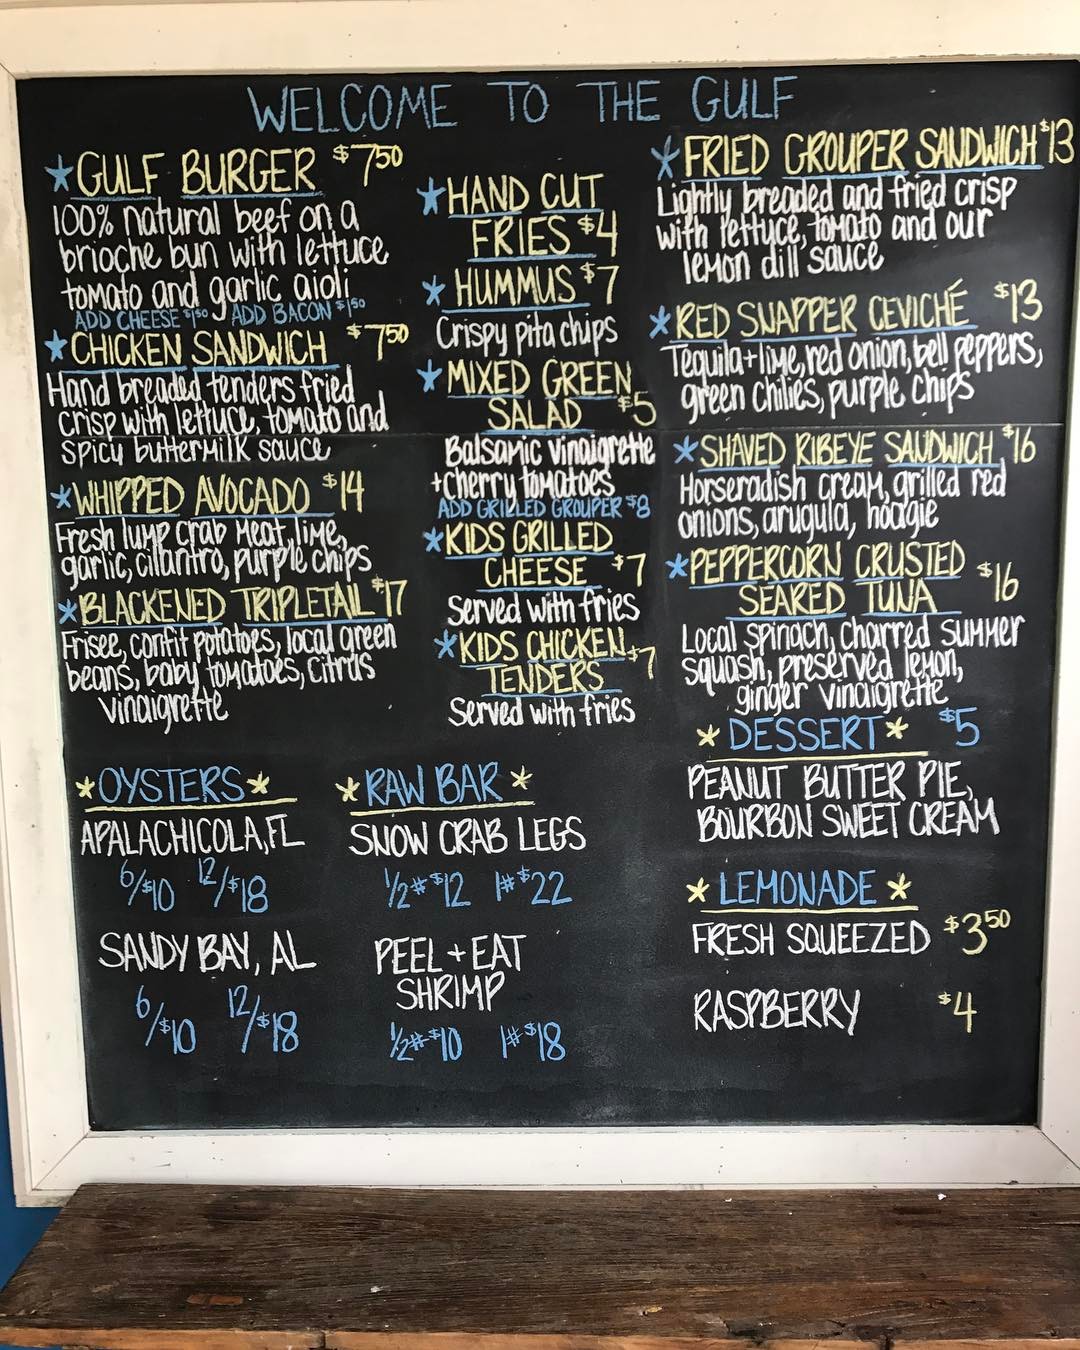 WELCOME TO THE GULF
*GULF BURGER $7.50
100% natural beef on a
brioche bun with lettuce
tomato and garlic aioli
ADD CHEESE $1.50 ADD BACON $1.50
*CHICKEN SANDWICH $7.50
Hand breaded tenders fried
crisp with lettuce, tomato and
spicy buttermilk sauce
*WHIPPED AVOCADO $14
Fresh lump crab meat, lime,
garlic, cilantro, purple chips
*BLACKENED TRIPLETAIL $17
Frisee, confit potatoes, local green
beans, baby tomatoes, citrus
vinaigrette
*HAND CUT
FRIES $4
*HUMMUS $7
Crispy pita chips
*MIXED GREEN
SALAD $5
Balsamic vinaigrette
+cherry tomatoes
ADD GRILLED GROUPER $8
*KIDS GRILLED
CHEESE $7
Served with fries
*KIDS CHICKEN $7
TENDERS
Served with fries
*FRIED GROUPER SANDWICH $13
Lightly breaded and fried crisp
with lettuce, tomato and our
lemon dill sauce
*RED SNAPPER CEVICHÉ $13
Tequila+lime, red onion, bell peppers,
green chilies, purple chips
*SHAVED RIBEYE SANDWICH $16
Horseradish cream, grilled red
onions, arugula, hoagie
*PEPPERCORN CRUSTED
SEARED TUNA $16
Local spinach, charred summer
squash, preserved lemon,
ginger vinaigrette
*DESSERT* $5
PEANUT BUTTER PIE,
BOURBON SWEET CREAM
*LEMONADE*
FRESH SQUEEZED $3.50
RASPBERRY $4
*OYSTERS*
APALACHICOLA, FL
6/$10 12/$18
SANDY BAY, AL
6/$10 12/$18
*RAW BAR*
SNOW CRAB LEGS
1/2# $12 1# $22
PEEL + EAT
SHRIMP
1/2# $10 1# $18